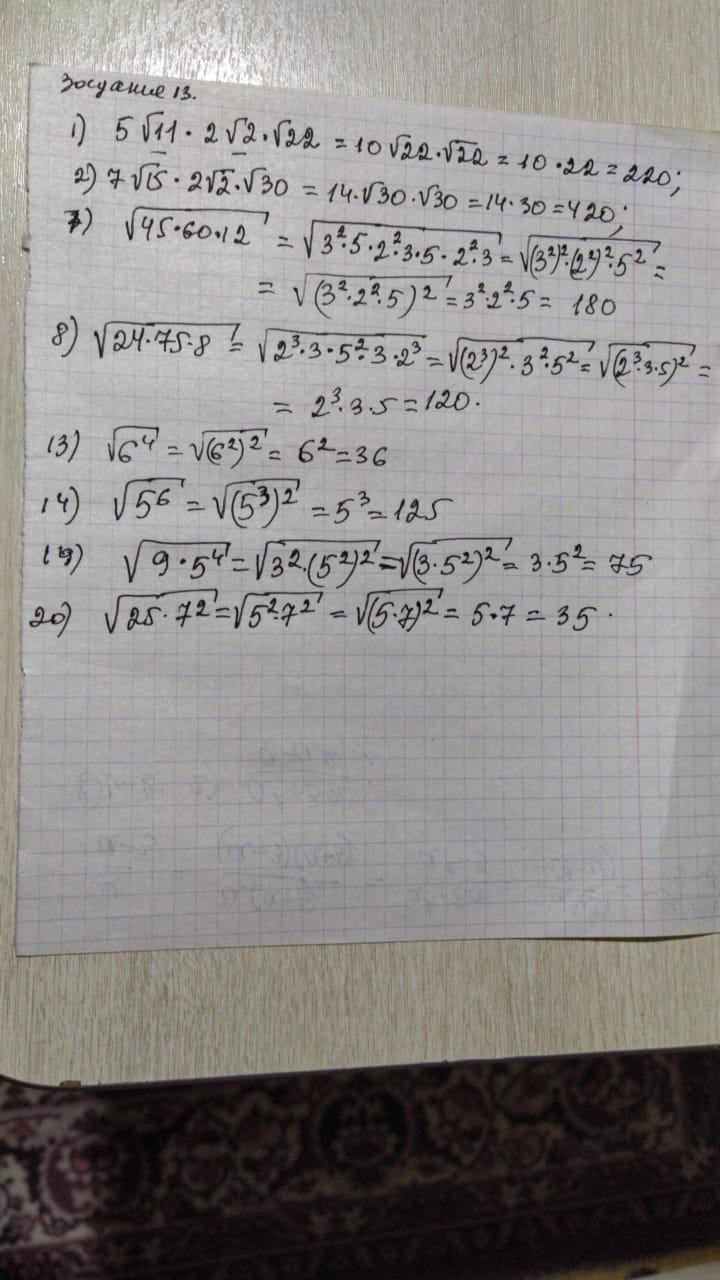 Задание 13.
1) 5√11 · 2√2 · √22 = 10√22 · √22 = 10 · 22 = 220;
2) 7√15 · 2√2 · √30 = 14 · √30 · √30 = 14 · 30 = 420;
7) √(45 · 60 · 12) = √(3² · 5 · 2² · 3 · 5 · 2² · 3) = √((3²)² · (2²)² · 5²) =
= √((3² · 2² · 5)²) = 3² · 2² · 5 = 180
8) √(24 · 75 · 8) = √(2³ · 3 · 5² · 3 · 2³) = √((2³)² · 3² · 5²) = √((2³ · 3 · 5)²) =
= 2³ · 3 · 5 = 120.
13) √(6⁴) = √((6²)²) = 6² = 36
14) √(5⁶) = √((5³)²) = 5³ = 125
19) √(9 · 5⁴) = √(3² · (5²)²) = √((3 · 5²)²) = 3 · 5² = 75
20) √(25 · 7²) = √(5² · 7²) = √((5 · 7)²) = 5 · 7 = 35.